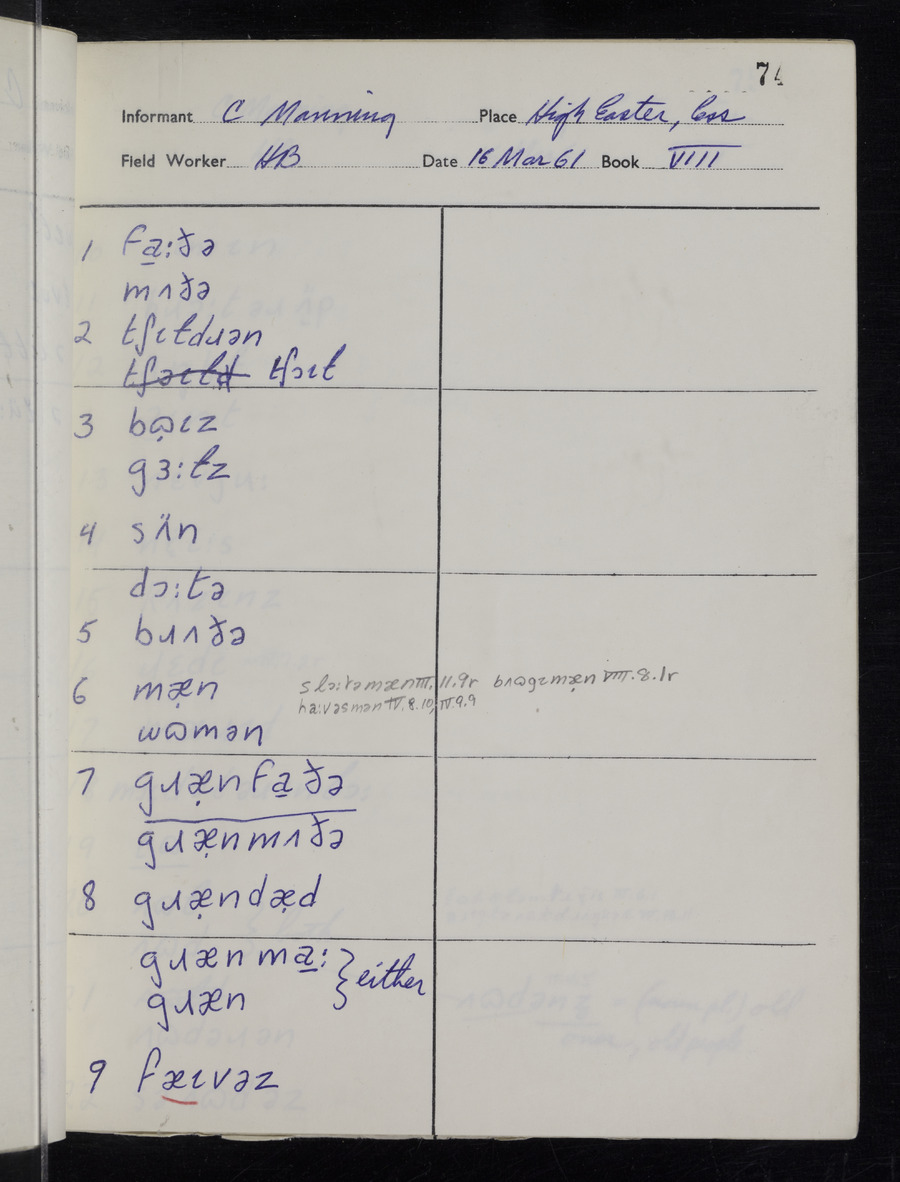 74
Informant C Manning Place High Easter, Ess
Field Worker HB Date 16 Mar 61 Book VIII
1 fa̱:ðə
mʌðə
2 tʃɩtdɹən
tʃəɩtd tʃɔɩt
3 bɷ̣ɩz
gɜ:tz
4 sʌ̈n
dɔ:tə
5 bɹʌðə
6 mæ̣n slɔ:təmæn III.11.9r bɹɷgɩmæ̣n VIII.8.1r
ha:vəsmən IV.8.10, IV.9.9
wɷmən
7 gɹæ̣nfa̱ðə
gɹæ̣nmʌðə
8 gɹæ̣ndæ̣d
gɹænma̱:
gɹæn } either
9 fæɩvəz